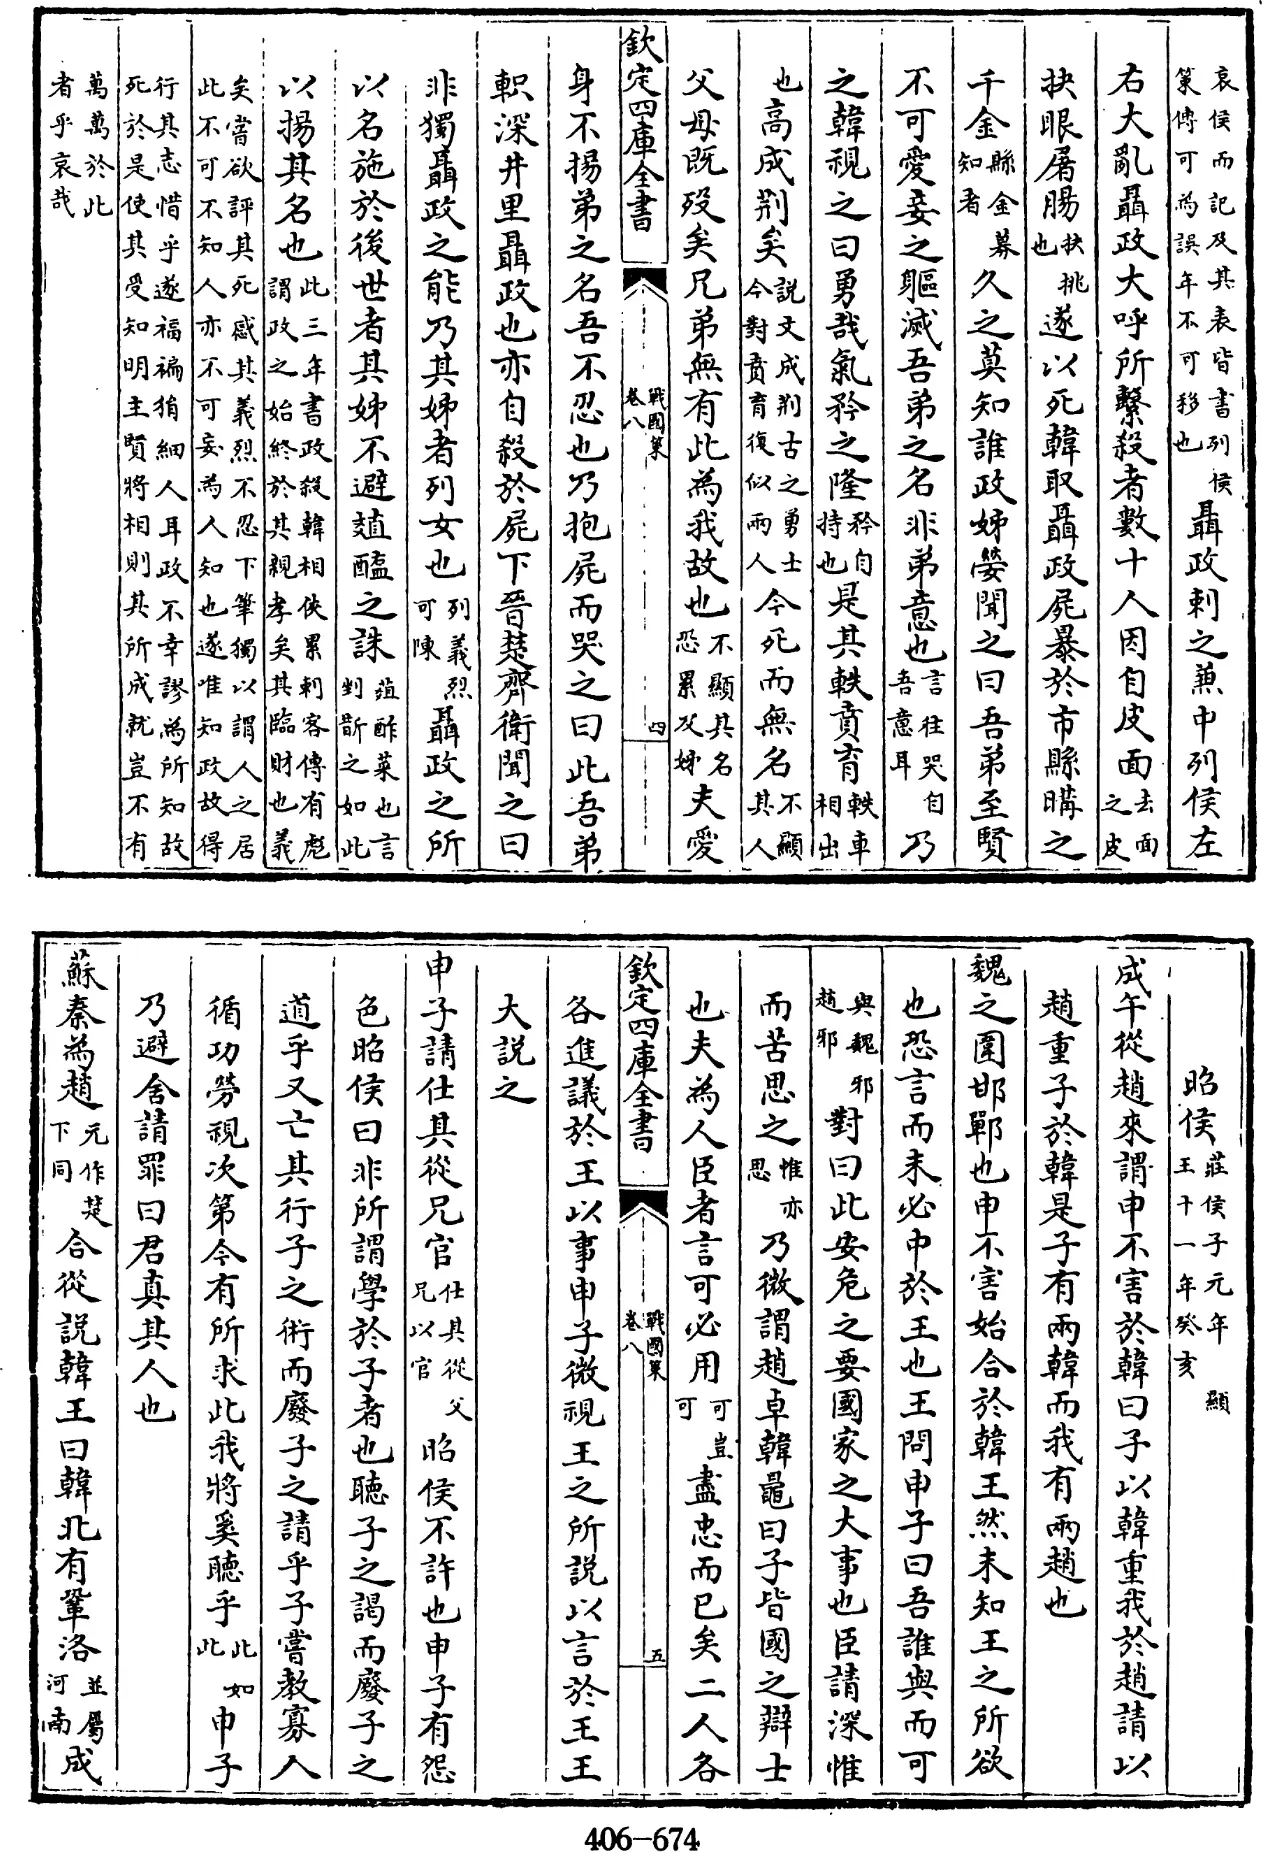 哀侯而記及其表皆書列侯
策傳可為誤年不可移也聶政刺之兼中列侯左
右大亂聶政大呼所繫殺者數十人因自皮面去面之皮
抉眼屠腸抉挑也遂以死韓取聶政屍暴於市縣購之
千金縣金募知者久之莫知誰政姊嫈聞之曰吾弟至賢
不可愛妾之軀滅吾弟之名非弟意也言往哭自吾意耳乃
之韓視之曰勇哉氣矜之隆矜自持也是其軼賁育軼車相出
也高成荆矣説文成荆古之勇士今對賁育復似兩人今死而無名不顯其人
父母既歿矣兄弟無有此為我故也不顯其名恐累及姊夫愛
欽定四庫全書
戰國策
卷八
四
身不揚弟之名吾不忍也乃抱屍而哭之曰此吾弟
軹深井里聶政也亦自殺於屍下晉楚齊衛聞之曰
非獨聶政之能乃其姊者列女也列義烈可陳聶政之所
以名施於後世者其姊不避葅醢之誅葅酢菜也言剉斮之如此
以揚其名也此三年書政殺韓相俠累刺客傳有彪謂政之始終於其親孝矣其臨財也義
矣嘗欲評其死感其義烈不忍下筆獨以謂人之居
此不可不知人亦不可妄為人知也遂唯知政故得
行其志惜乎遂福褊狷細人耳政不幸謬為所知故
死於是使其受知明主賢將相則其所成就豈不有
萬萬於此
者乎哀哉
昭侯莊侯子元年顯王十一年癸亥
成午從趙來謂申不害於韓曰子以韓重我於趙請以
趙重子於韓是子有兩韓而我有兩趙也
魏之圍邯鄲也申不害始合於韓王然未知王之所欲
也恐言而未必中於王也王問申子曰吾誰與而可
與魏邪趙邪對曰此安危之要國家之大事也臣請深惟
而苦思之惟亦思乃微謂趙卓韓鼂曰子皆國之辯士
也夫為人臣者言可必用可豈可盡忠而已矣二人各
欽定四庫全書
戰國策
卷八
五
各進議於王以事申子微視王之所説以言於王王
大説之
申子請仕其從兄官仕其從父兄以官昭侯不許也申子有怨
色昭侯曰非所謂學於子者也聽子之謁而廢子之
道乎又亡其行子之術而廢子之請乎子嘗教寡人
循功勞視次第今有所求此我將奚聽乎此如此申子
乃避舍請罪曰君真其人也
蘇秦為趙元作楚下同合從説韓王曰韓北有鞏洛並屬河南成
406-674